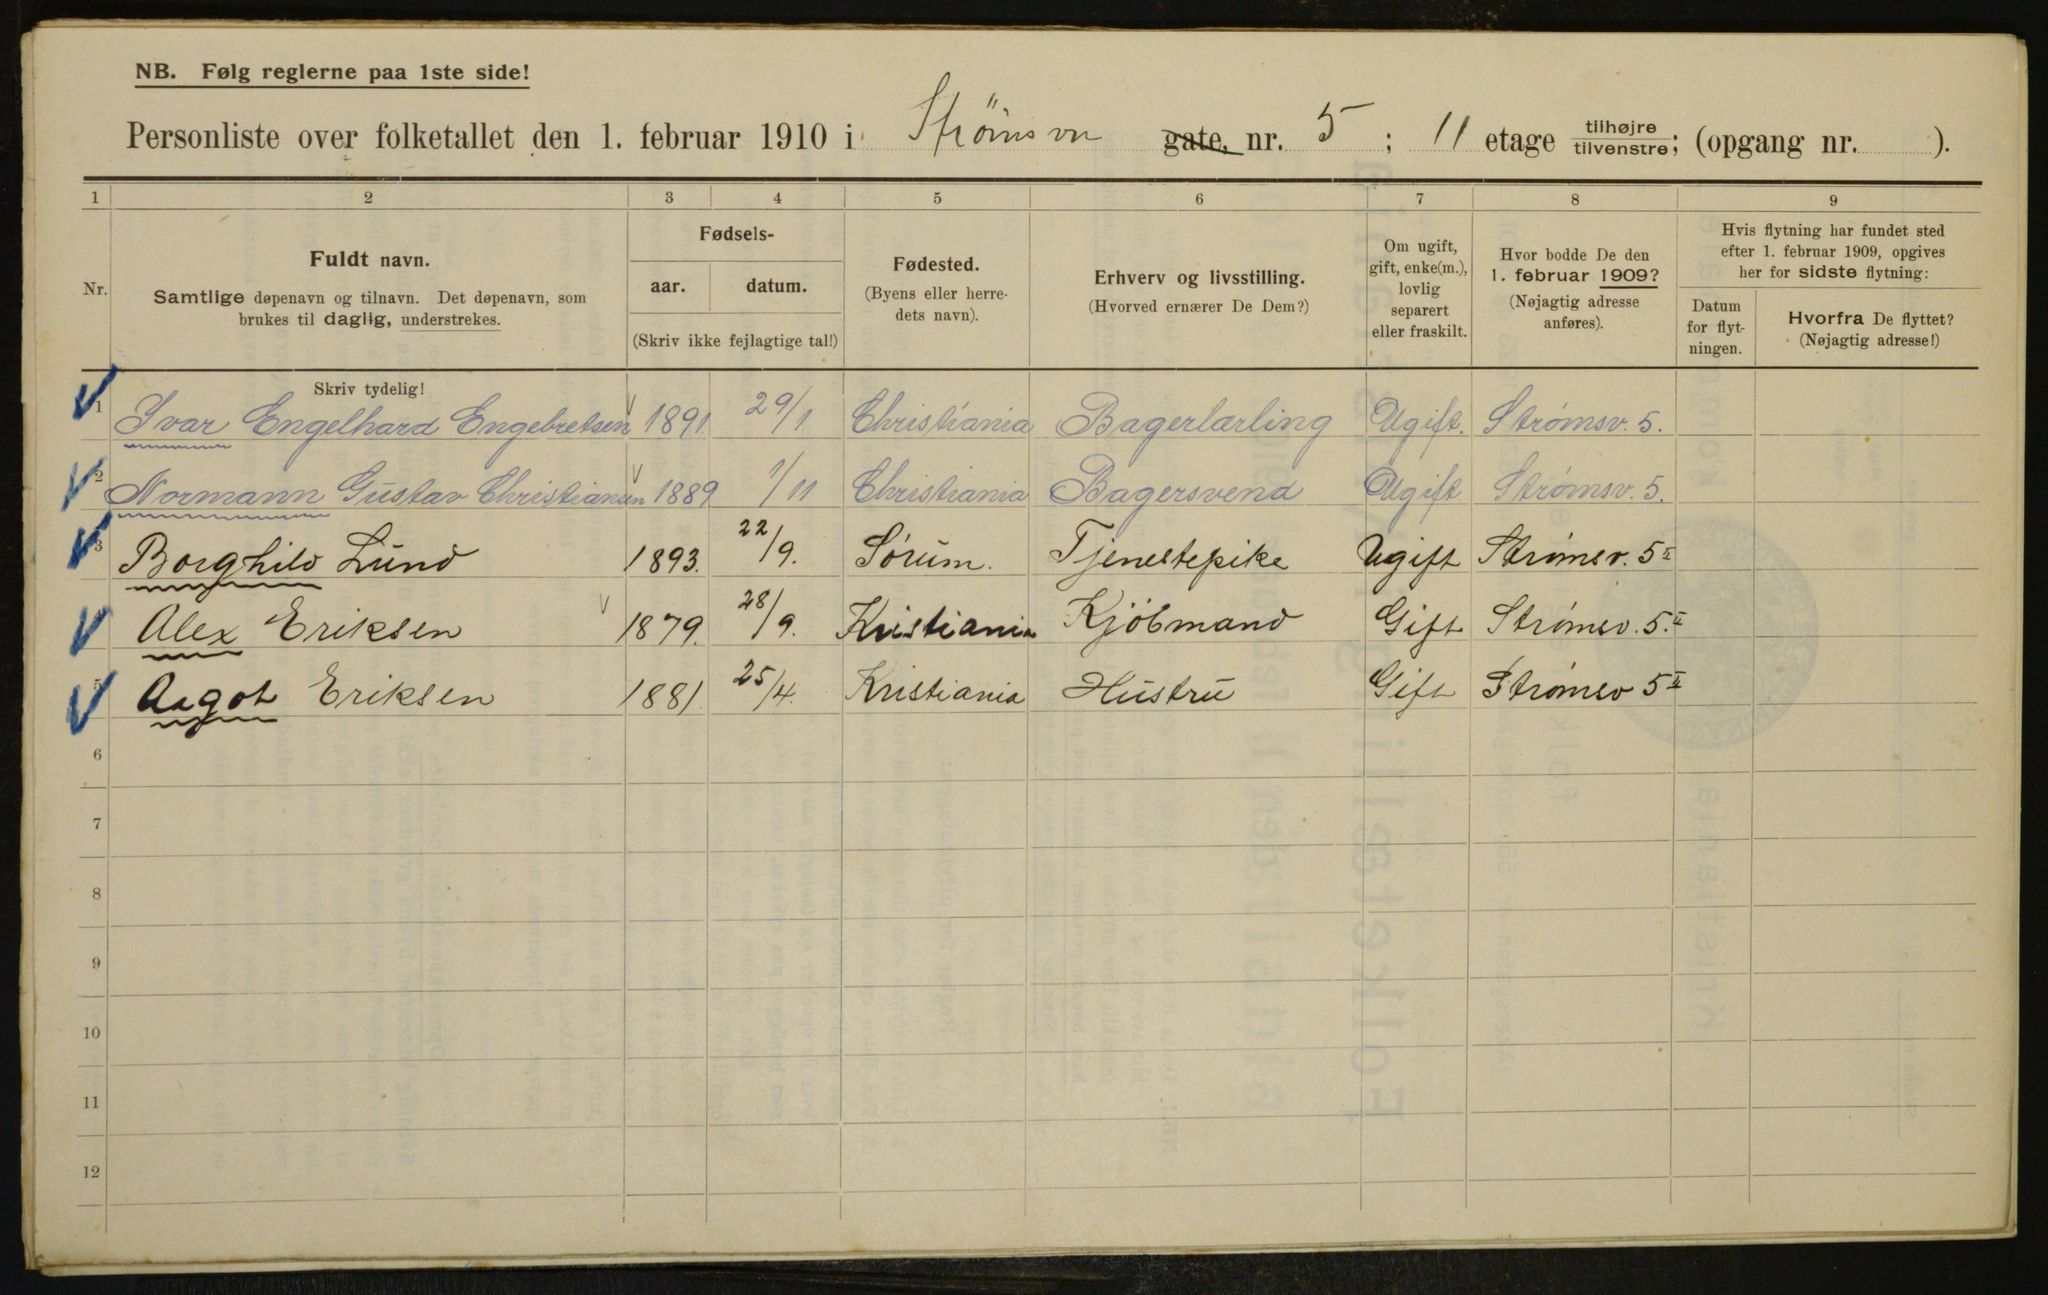 NB. Følg reglerne paa 1ste side!
Personliste over folketallet den 1. februar 1910 i Strömsvn gate, nr. 5 ; 11 etage tilhøjre tilvenstre; (opgang nr. ).
1 2 3 4 5 6 7 8 9
Nr.
Fuldt navn.
Samtlige døpenavn og tilnavn. Det døpenavn, som
brukes til daglig, understrekes.
Skriv tydelig!
Fødsels-
aar. datum.
(Skriv ikke fejlagtige tal!)
Fødested.
(Byens eller herre-
dets navn).
Erhverv og livsstilling.
(Hvorved ernærer De Dem?)
Om ugift,
gift, enke(m.),
lovlig
separert
eller fraskilt.
Hvor bodde De den
1. februar 1909?
(Nøjagtig adresse
anføres).
Hvis flytning har fundet sted
efter 1. februar 1909, opgives
her for sidste flytning:
Datum
for flyt-
ningen.
Hvorfra De flyttet?
(Nøjagtig adresse!)
1 Ivar Engelhard Engebretsen 1891. 29/1. Christiania Bagerlærling Ugift. Strømsv. 5.
2 Normann Gustav Christiansen 1889 1/11 Christiania Bagersvend Ugift Strømsv. 5.
3 Borghild Lund 1893. 22/9. Sórum. Tjenestepike Ugift Strømsv. 5 II
4 Alex Eriksen 1879. 28/9. Kristiania Kjöbmand Gift Strømsv. 5. II
5 Aagot Eriksen 1881. 25/4. Kristiania Hustru Gift Strømsv 5 II
6
7
8
9
10
11
12